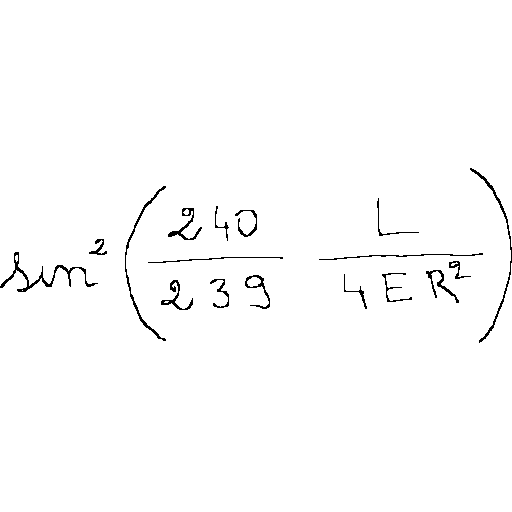 \sin^2 \left( \frac{240}{239} \frac{L}{4ER^2} \right)